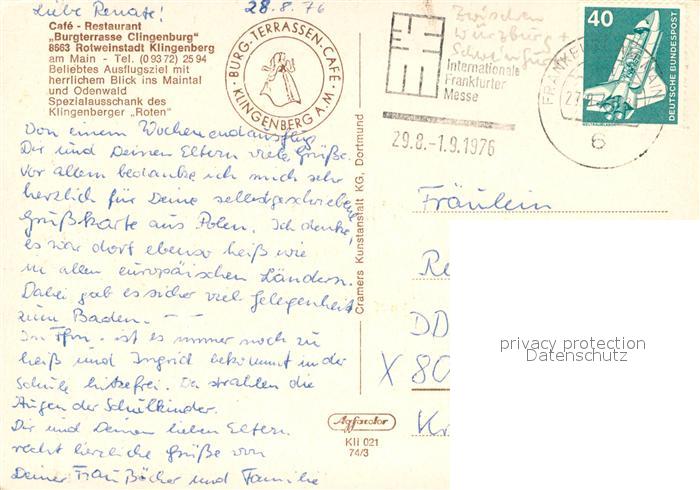 Liebe Renate!
28.8.76
Café - Restaurant
„Burgterrasse Clingenburg"
8663 Rotweinstadt Klingenberg
am Main - Tel. (0 93 72) 25 94
Beliebtes Ausflugsziel mit
herrlichem Blick ins Maintal
und Odenwald
Spezialausschank des
Klingenberger „Roten"
BURG-TERRASSEN-CAFÉ
KLINGENBERG A.M.
Von einem Wochenendausflug
Dir und Deinen Eltern viele Grüße.
Vor allem bedanke ich mich sehr
herzlich für Deine selbstgeschriebene
Grußkarte aus Polen. Ich denke,
es war dort ebenso heiß wie
in allen europäischen Ländern.
Dabei gab es sicher viel Gelegenheit
zum Baden. - -
In Ffm. ist es immer noch zu
heiß und Ingrid bekommt in der
Schule hitzefrei. Da strahlen die
Augen der Schulkinder.
Dir und Deinen lieben Eltern
recht herzliche Grüße von
Deiner Frau Böcher und Familie
Cramers Kunstanstalt KG, Dortmund
Agfacolor
KII 021
74/3
Zwischen
Würzburg +
Internationale
Frankfurter
Messe
29.8.-1.9.1976
FRANKFURT AM MAIN
6
40
DEUTSCHE BUNDESPOST
Fräulein
Re
DD
X 80
Kr
privacy protection
Datenschutz